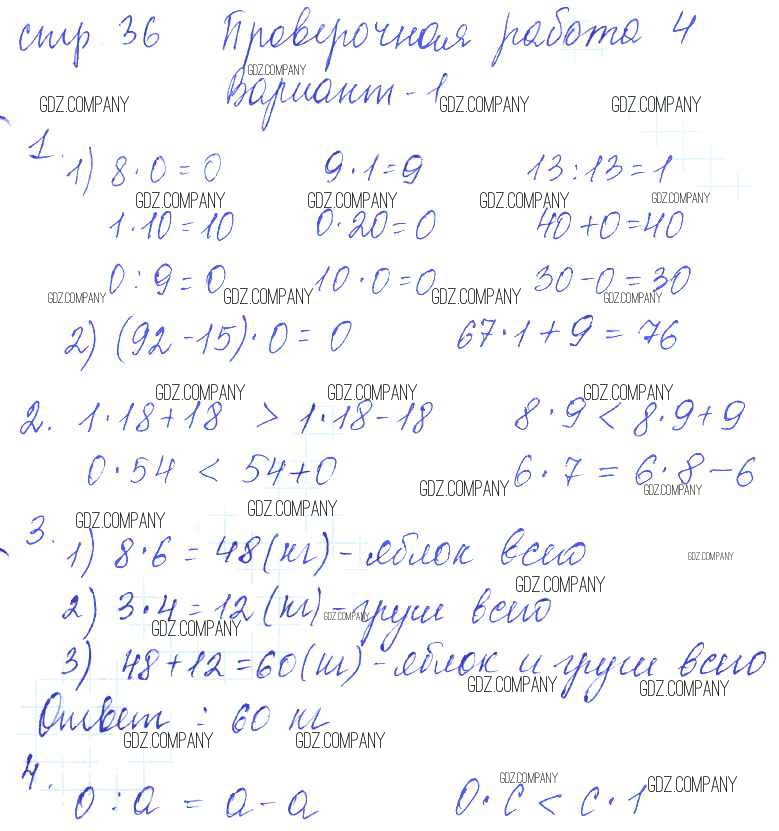 стр. 36 Проверочная работа 4
Вариант - 1
1. 1) 8 · 0 = 0 9 · 1 = 9 13 : 13 = 1
1 · 10 = 10 0 · 20 = 0 40 + 0 = 40
0 : 9 = 0 10 · 0 = 0 30 - 0 = 30
2) (92 - 15) · 0 = 0 67 · 1 + 9 = 76
2. 1 · 18 + 18 > 1 · 18 - 18 8 · 9 < 8 · 9 + 9
0 · 54 < 54 + 0 6 · 7 = 6 · 8 - 6
3. 1) 8 · 6 = 48 (кг) - яблок всего
2) 3 · 4 = 12 (кг) - груш всего
3) 48 + 12 = 60 (кг) - яблок и груш всего
Ответ : 60 кг
4. 0 : a = a - a 0 · c < c · 1
GDZ.COMPANY